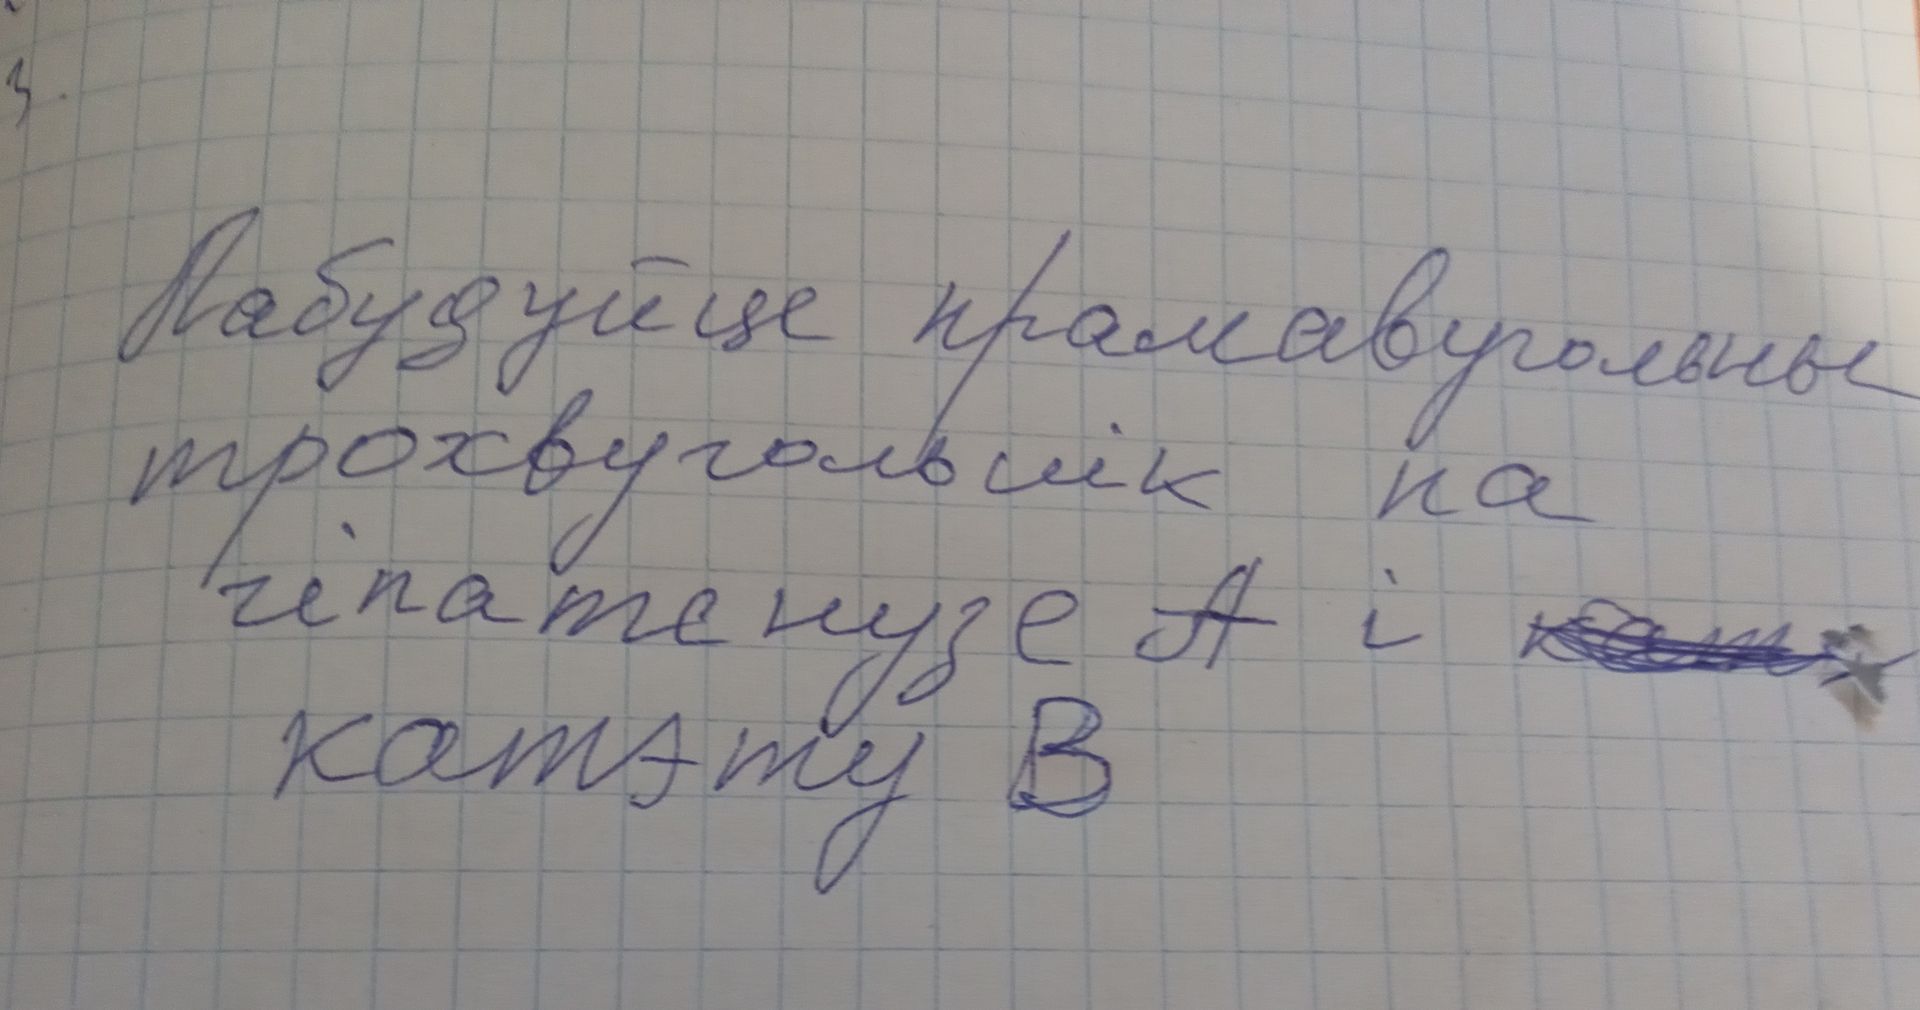 3.
Пабудуйце прамавугольны
трохвугольнік па
гіпатенузе А і
катэту В